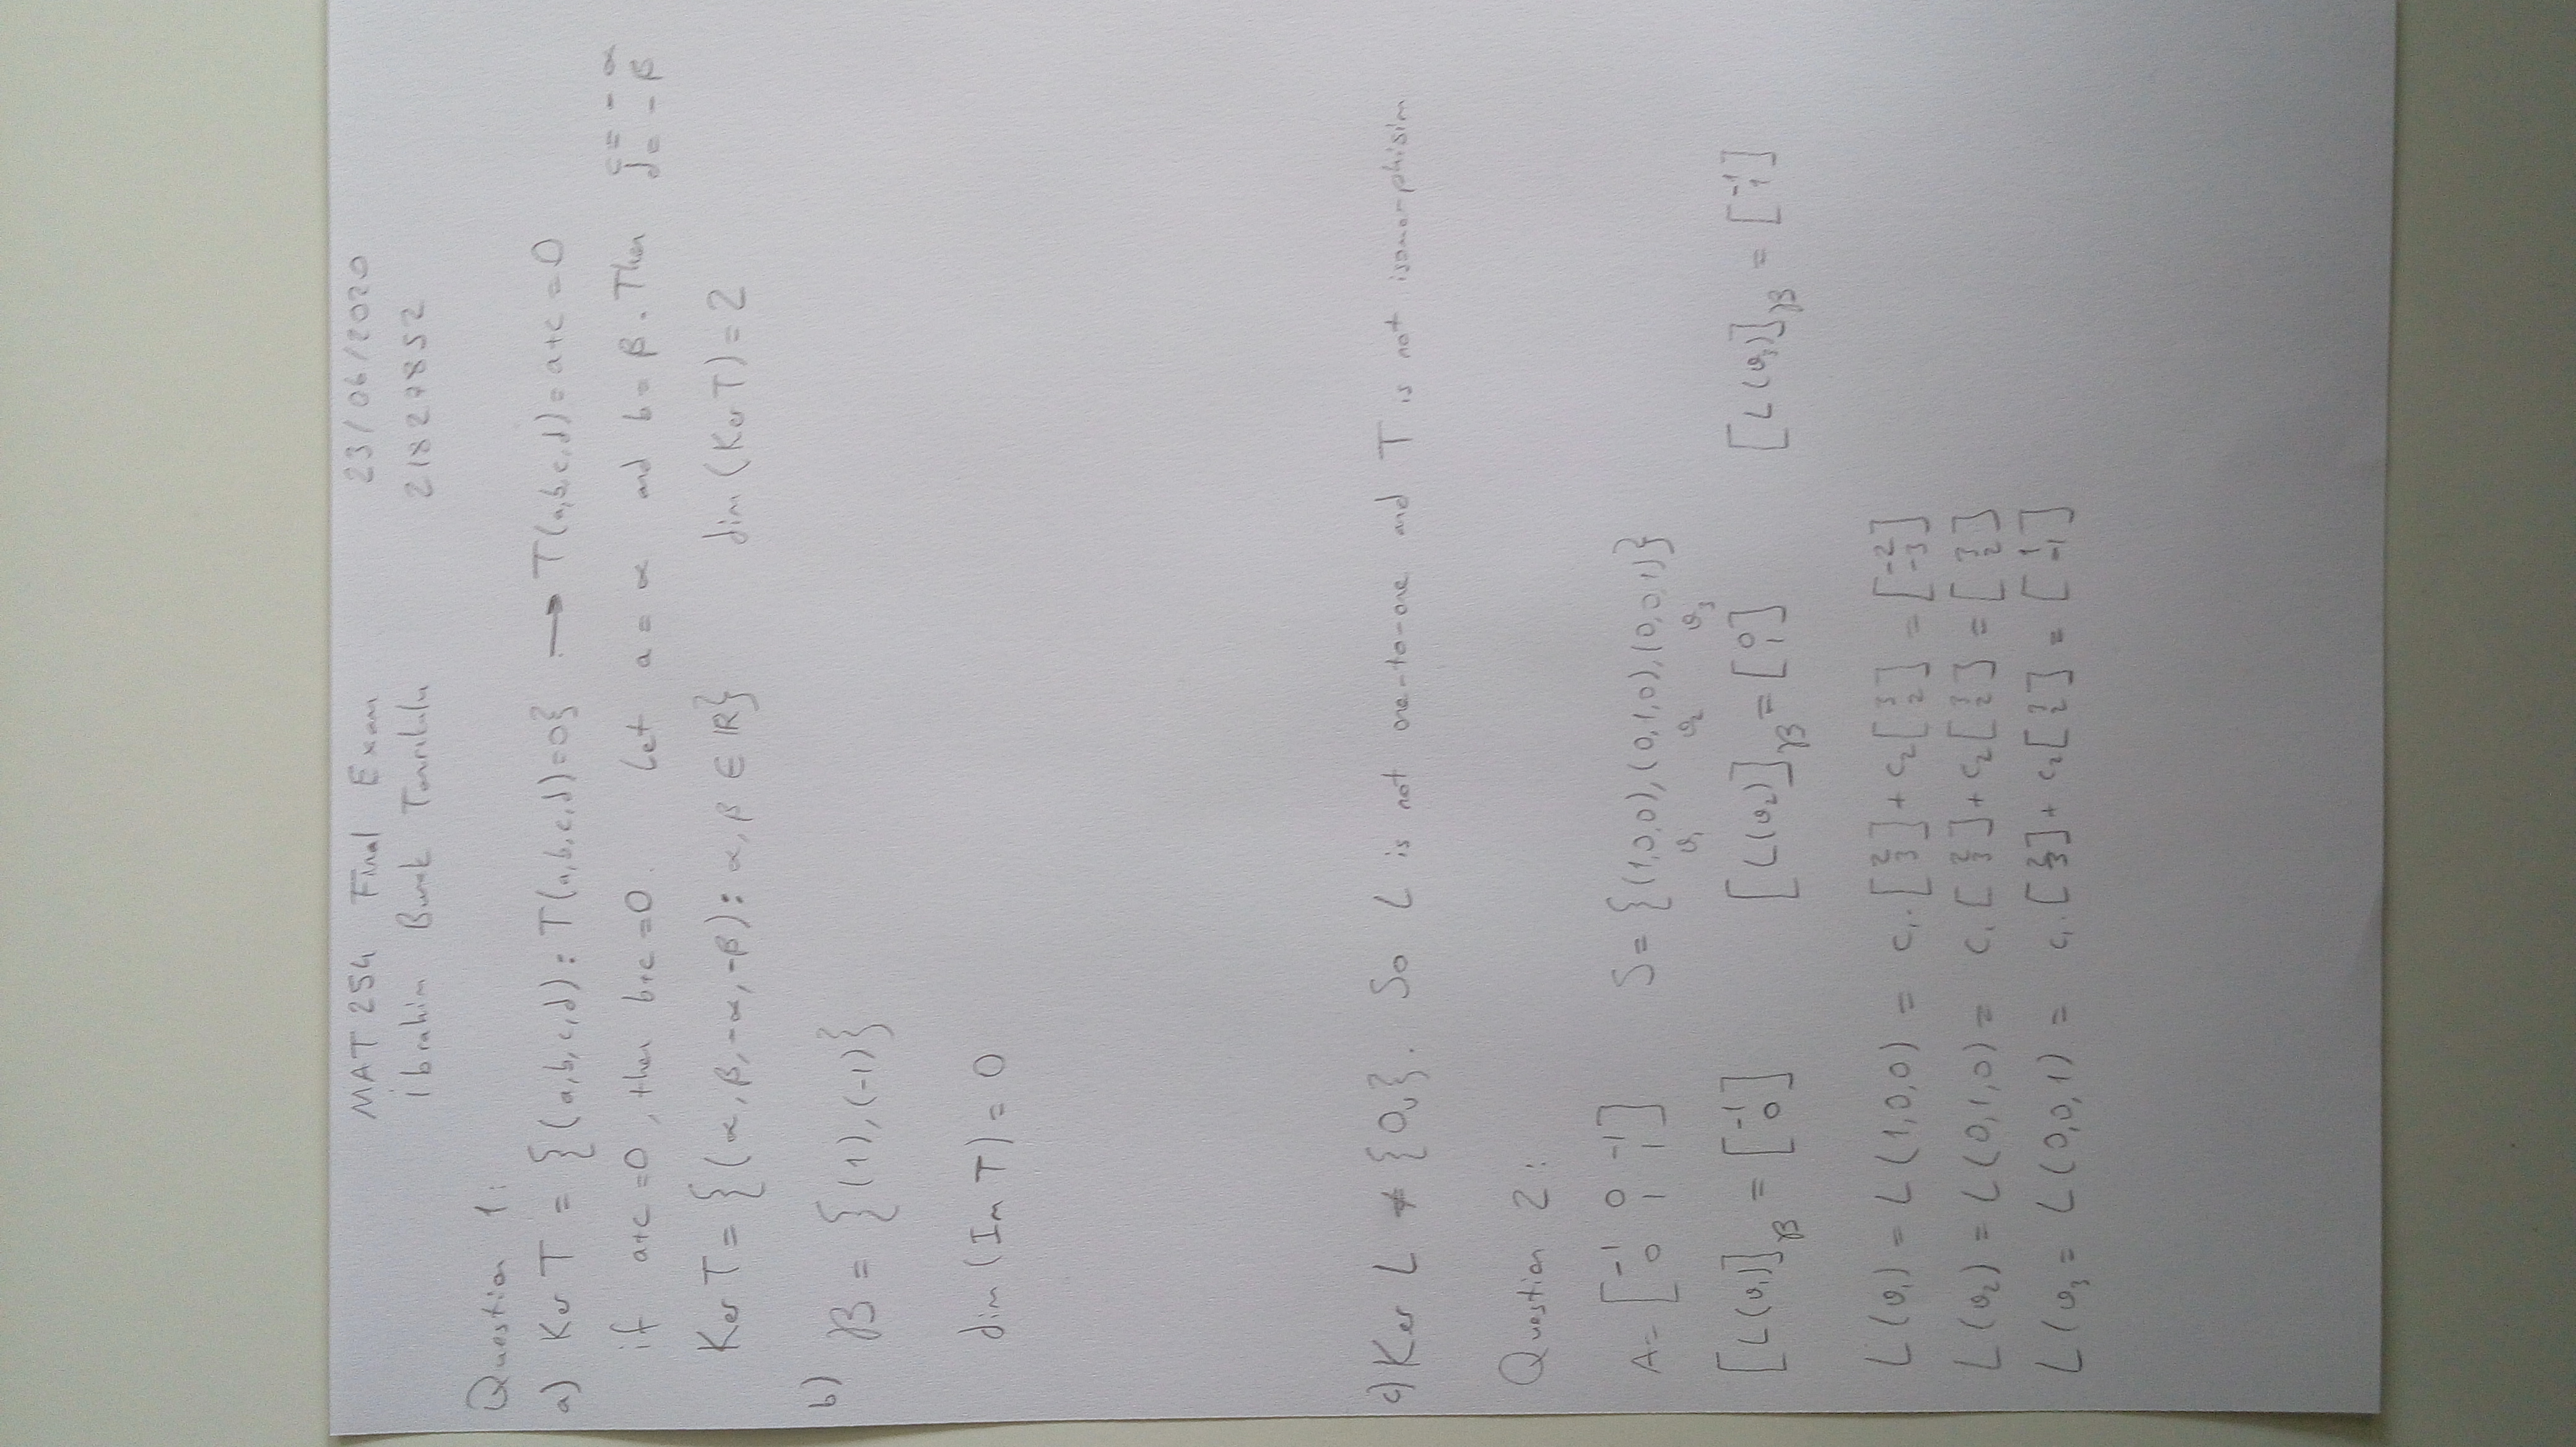 MAT 254 Final Exam 23/06/2020
İbrahim Burak Tanrıkulu 21827852
Question 1:
a) Ker T = {(a,b,c,d) : T(a,b,c,d)=0} → T(a,b,c,d) = a+c = 0
if a+c = 0, then b+c = 0. Let a = α and b = β. Then c = -α d = -β
Ker T = {(α, β, -α, -β) : α, β ∈ ℝ} dim (Ker T) = 2
b) B = {(1), (-1)}
dim (Im T) = 0
c) Ker L ≠ {0ᵥ}. So L is not one-to-one and T is not isomorphisim
Question 2:
A = [-1 0 -1; 0 1 1] S = {(1,0,0), (0,1,0), (0,0,1)}
v₁ v₂ v₃
[L(v₁)]_B = [-1; 0] [L(v₂)]_B = [0; 1] [L(v₃)]_B = [-1; 1]
L(v₁) = L(1,0,0) = c₁. [2; 3] + c₂ [3; 2] = [-2; -3]
L(v₂) = L(0,1,0) = c₁ [2; 3] + c₂ [3; 2] = [3; 2]
L(v₃ = L(0,0,1) = c₁. [2; 3] + c₂ [3; 2] = [1; -1]